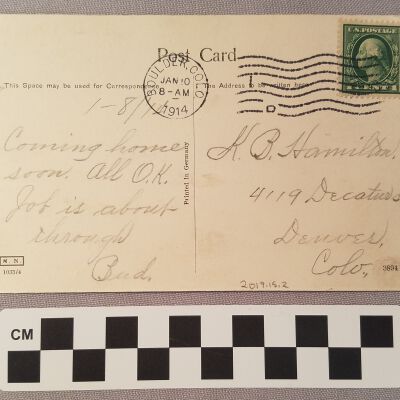 Post Card
This Space may be used for Correspondence
This Address to be written here
BOULDER, COLO.
JAN 10
8-AM
1914
U.S. POSTAGE
1 CENT 1
Coming home
soon. All O.K.
Job is about
through
Bud.
Printed in Germany
K. B. Hamilton.
4119 Decatur
Denver,
Colo,
M. N.
1033/4
3894
2019.15.2
CM